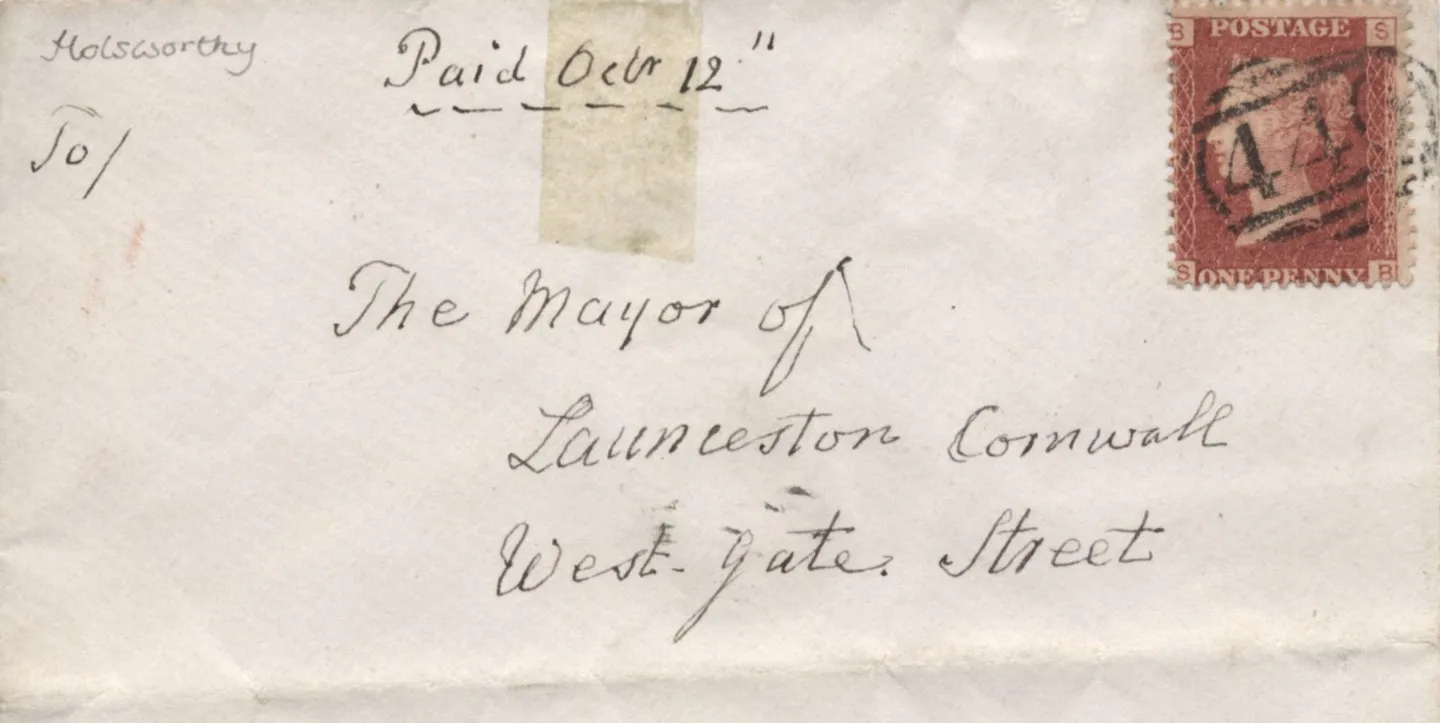 Holsworthy
Paid Octr 12"
To/
The Mayor of
Launceston Cornwall
West-gate. Street
B POSTAGE S
44
S ONE PENNY B